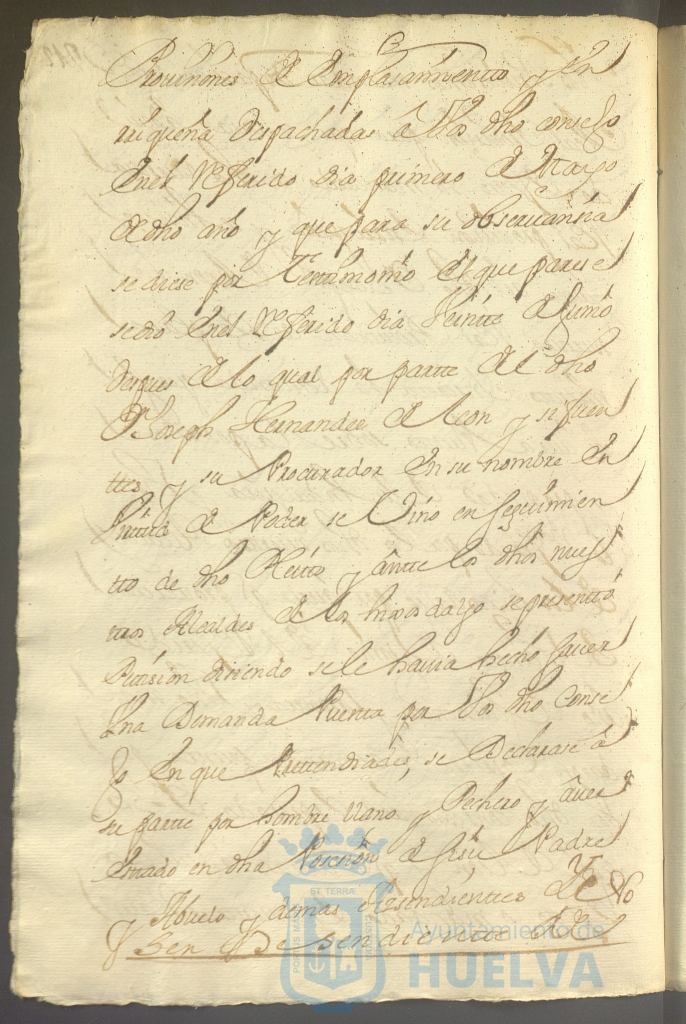 Provisiones de Emplasamientto y en
ttrequeña despachadas â Vos dho consejo
Enel Referido dia primero de Mayo
de dho año y que para su observanzia
se diese por Testtimonio El que parese
se dio Enel Referido dia Veintte de Junio
despues de lo qual por partte del dho
Dn Joseph Hernandez de leon y
y su Procurador en su nombre en
de Poder se Vino en seguimien
tto de dho Pleitto y ântte los dhôs nuess
ttros Alcaldes de los hijos dalgo se presenttó
Petision diziendo se le havia hecho saver
Una Demanda Puestta por Vos dho Conse
jo en que Prettendiades, se Declarase â
su partte por hombre llano y Pechero y âver
Esttado en dha Posesion de su Padre
y Abuelo y demas
ET TERRÆ
PORTUS MARIS
CUSTODIA
Ayuntamiento de
HUELVA